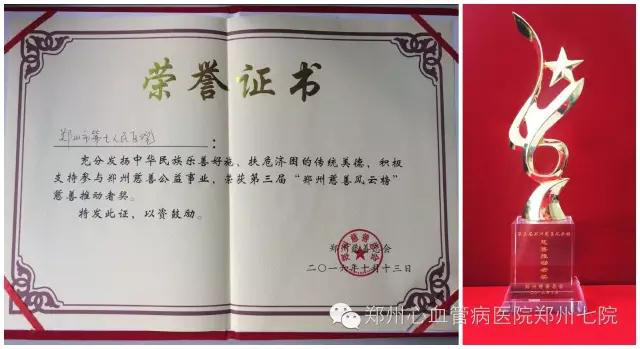 荣誉证书
郑州市第七人民医院：
充分发扬中华民族乐善好施、扶危济困的传统美德，积极
支持参与郑州慈善公益事业，荣获第三届“郑州慈善风云榜”
慈善推动者奖。
特发此证，以资鼓励。
郑州慈善总会
二〇一六年十月十三日
第三届郑州慈善风云榜
慈善推动者奖
郑州慈善总会
郑州心血管病医院郑州七院